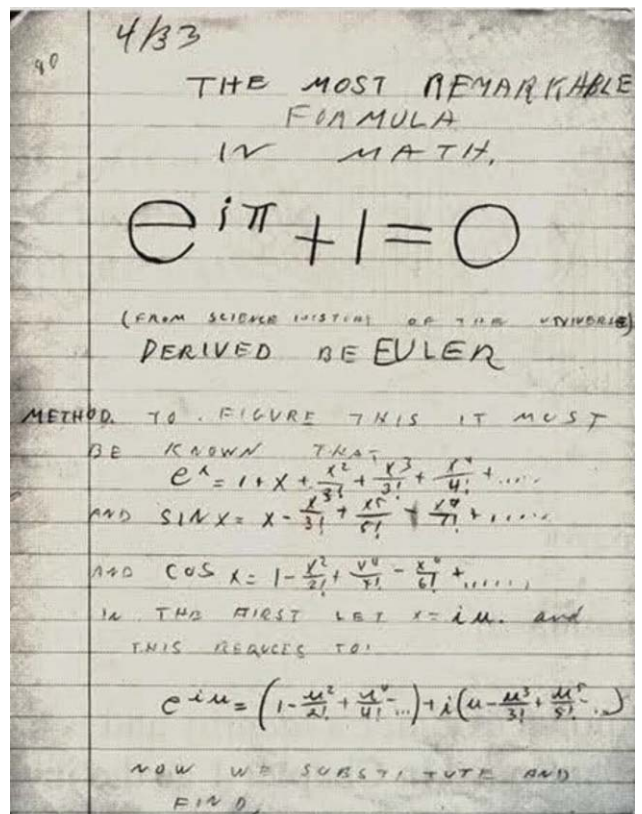 4/33
90
THE MOST REMARKABLE
FORMULA
IN MATH.
e^{iπ} + 1 = 0
(FROM SCIENCE HISTORY OF THE UNIVERSE)
DERIVED BE EULER
METHOD. TO FIGURE THIS IT MUST
BE KNOWN THAT
e^x = 1 + x + x^2/ + x^3/3! + x^4/4! + .....
AND SIN x = x - x^3/3! + x^5/5! - x^7/7! + .....
AND COS x = 1 - x^2/2! + x^4/ - /6! + ......
IN THE FIRST LET x = iu. and
THIS REDUCES TO:
e^{iu} = (1 - u^2/2! + u^4/4! - ...) + i(u - u^3/3! + u^5/5! - ...)
NOW WE SUBSTITUTE AND
FIND